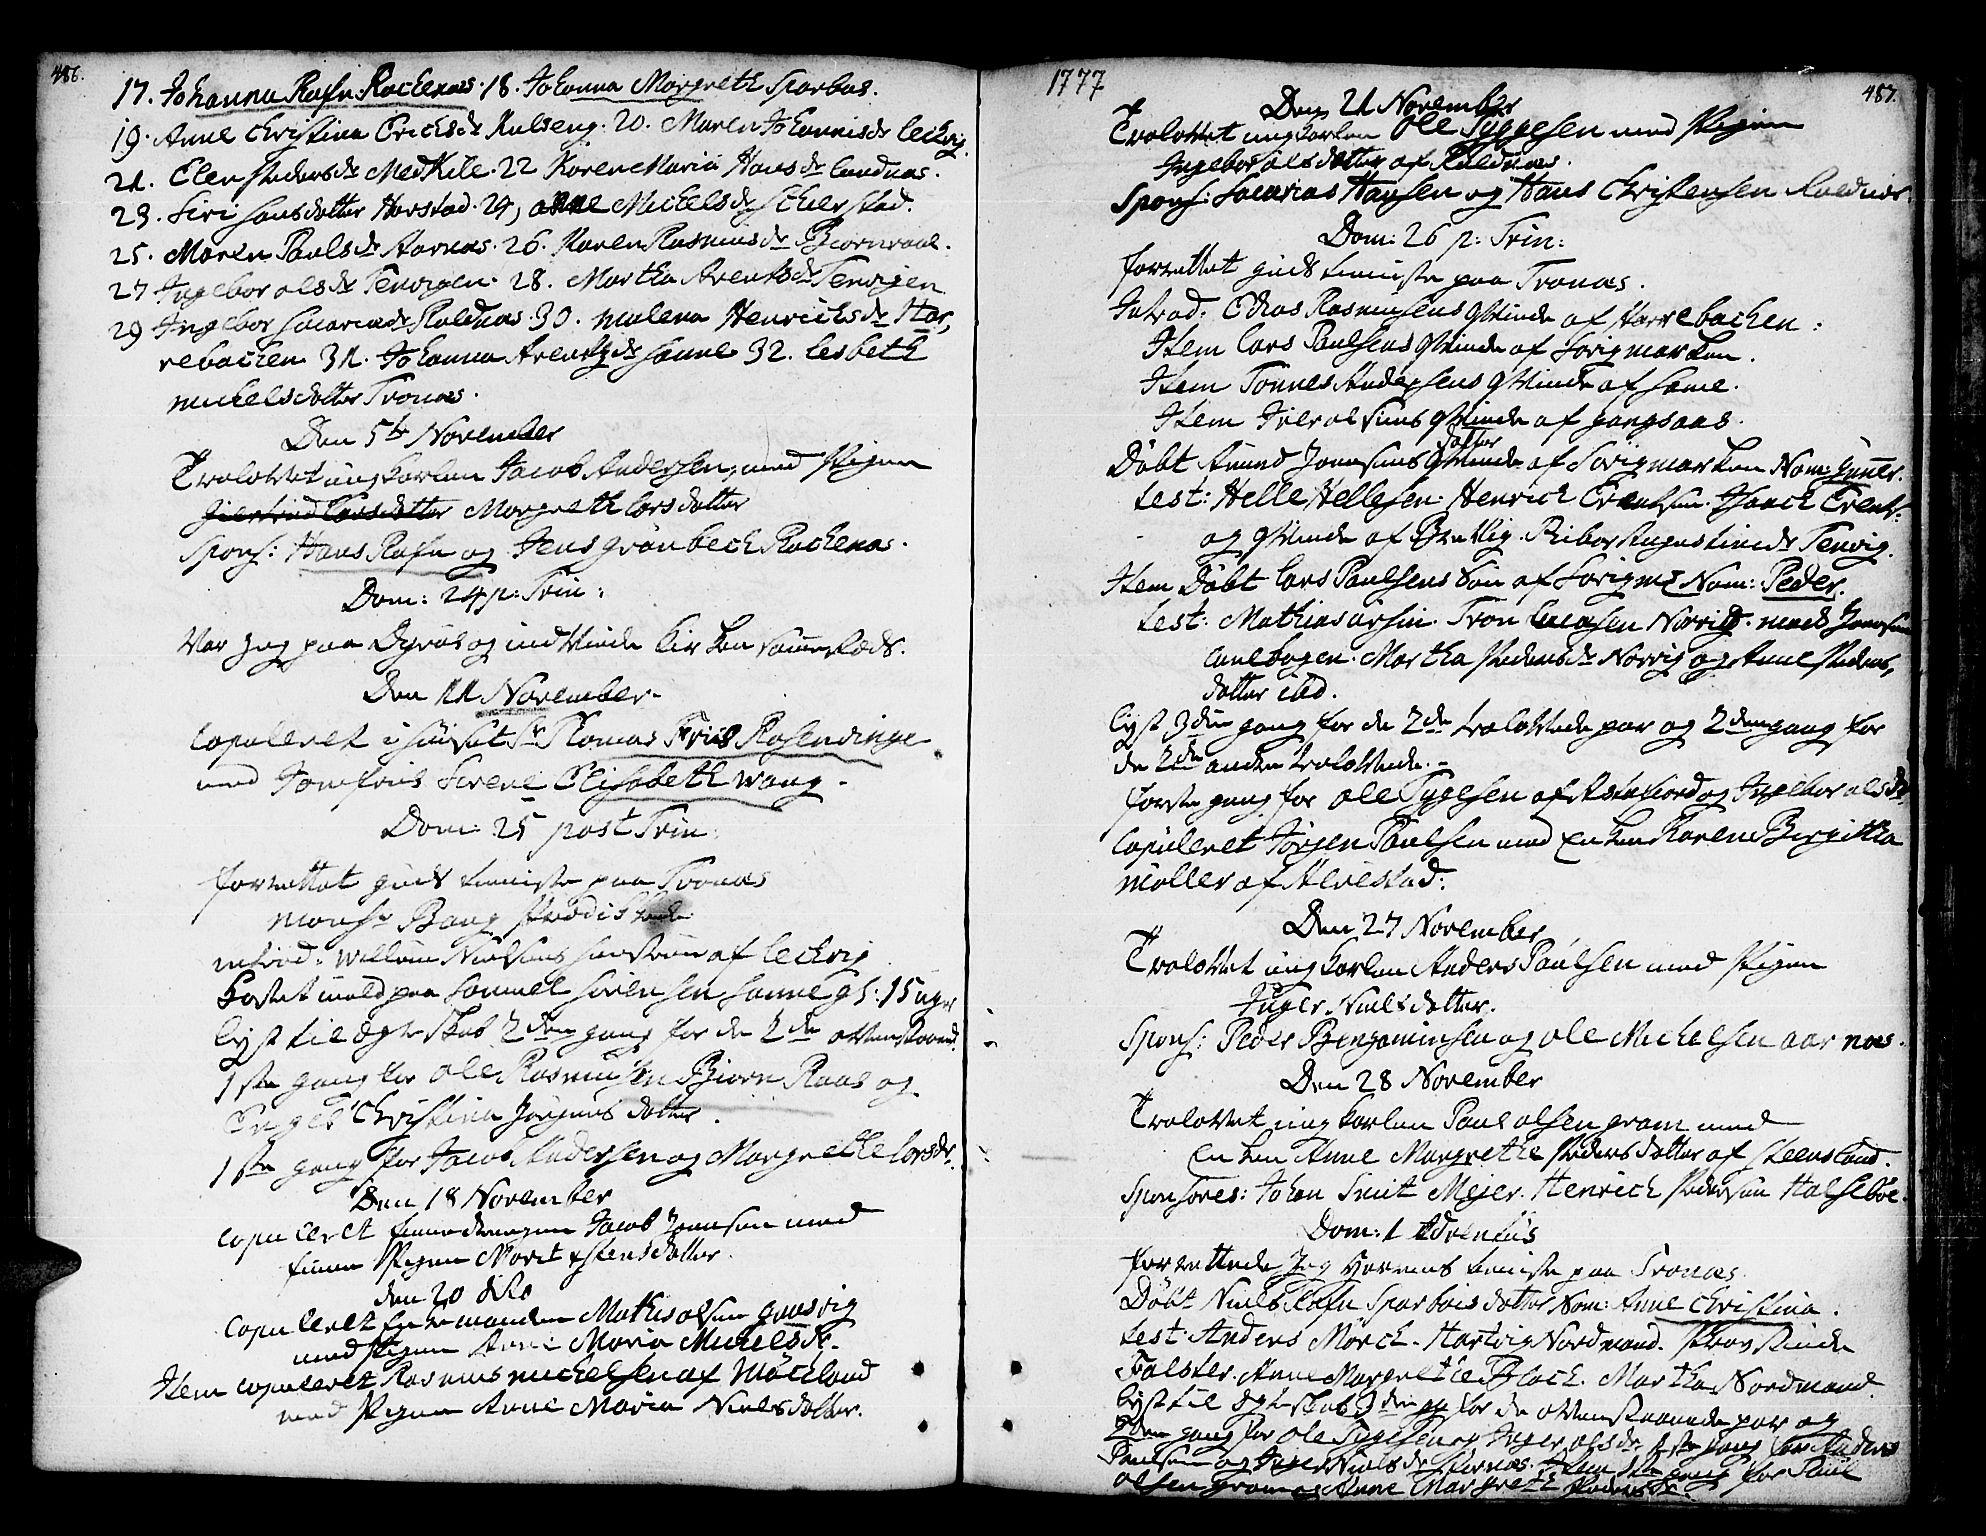 486.
17. Johanna Rafn Rachenæs. 18. Johanna Margreth Sparbøs.
19. Anne Christina Erichsdr Kulseng. 20. Maren Johannisdr Lechvig.
21. Elen Pedersdr Medkile. 22 Karen Maria Hansdr Sandnæs.
23. Siri Hansdatter Harstad. 24, Anne Michelsdr Schierstad.
25. Maren Paulsdr Aarnæs. 26. Karen Rasmusdr Biørnraae.
27 Ingebor Olsdr Tennigen. 28. Martha Arentsdr Tennigen
29 Ingebor Sacariædr Roldnæs. 30. Malena Henrichsdr Har,
rebachen 31. Johanna Arentzdr Sanne 32. Lesbeth
Michelsdatter Tronæs.
Den 5te November
Trolovet ungkarlen Jacob Andersen, med Pigen
Giertrud Larsdatter Margreth Larsdatter
Spons: Hans Rafn og Jens Grønbech Rachenæs.
Dom: 24 p: Trin:
Var jeg paa Dyrøe og indviede Kirken sammesteds.
Den 11 November.
Copuleret i huuset Sr Thomas Friis Rosendinge
med Jomfrue Serene Elisabeth Wang.
Dom: 25 post Trin:
forrettet guds tieniste paa Tronæs
Monsr Bang Prædikede
introd: Willum Nielsens hustrue af Lechvig
Kastet muld paa Samuel Sørensen Sanne gl: 15 uger
Lyst til ægteskab 2den gang for de 2de ovenstaaend.
1ste gang for Ole Rasmusen Biørn Raae og
Inger Christina Jørgensdatter.
1ste gang for Jacob Andersen og Margrethe Larsdr.
Den 18 November
Copuleret finnedrengen Jacob Joensen med
finne Pigen Marit Estensdatter.
den 20 dito
Copuleret Enkemanden Mathis Olsen Gausvig
med Pigen Anne Maria Michelsdr.
Item copuleret Rasmus Michelsen af Møckland
med Pigen Anne Maria Nielsdatter.
1777
487.
Den 21 November
Trolovet ungkarlen Ole Tyggesen med Pigen
Ingebor Olsdatter af Roldnæs.
Spons: Sacarias Hansen og Hans Christensen Roldnæs.
Dom: 26 p: Trin:
forrettet guds tieniste paa Tronæs.
Introd. Elias Rasmusens Qvinde af Harrebachen:
Item Lars Paulsens Qvinde af Sørigmarken.
Item Tønnes Andersens Qvinde af Same.
Item Iver Olsens Qvinde af Gangsaas.
Døbt Amund Joensens datter af Sørigmarken Nom: Guner.
test: Helle Hellesen. Henrich Erentsen. Isaach Erents:
og Qvinde af Bretvig. Ribor Augustinedr Tenvig.
Item Døbt Lars Paulsens Søn af Sørigmr. Nom: Peder.
test: Mathias Ursin. Tron Lucasen Norvig. Mads Joensen
Lunebogen. Martha Pedersdr Norvig og Anne Peders,
datter ibid.
Lyst 3die gang for de 2de trolovede par og 2den gang for
de 2de andre trolovede.
første gang for Ole Tygesen af Astafiord og Ingebor Olsdr
Copuleret Jørgen Paulsen med Enken Karen Birgitha
Møller af Alvestad:
Den 27 November
Trolovet ungkarlen Anders Paulsen med Pigen
Inger Nielsdatter.
Spons: Peder Benjaminsen og Ole Michelsen Aarnæs.
Den 28 November
Trolovet ungkarlen Paul Olsen Gram med
Enken Anne Margrethe Pedersdatter af Steensland.
Sponsores: Johan Smit Mejer. Henrich Pedersen Halsebøe.
Dom: 1 Adventus
forrettede jeg Herrens tieniste paa Tronæs.
Døbt Niels Rafn Sparbøes datter Nom: Anne Christina.
test: Anders Mørch. Hartvig Nordmand. Provstinde
Falster. Anne Margrethe Bloch. Martha Nordmand.
Lyst til ægteskab 3die gg for de ovenstaaende par og
2den gang for Ole Tygesen og Inger Olsdr 1ste gang for Anders
Paulsen og Inger Nielsdr Stornæs. Item 1ste gang for Paul
Olsen Gram og Anne Margreth Pedersdr.